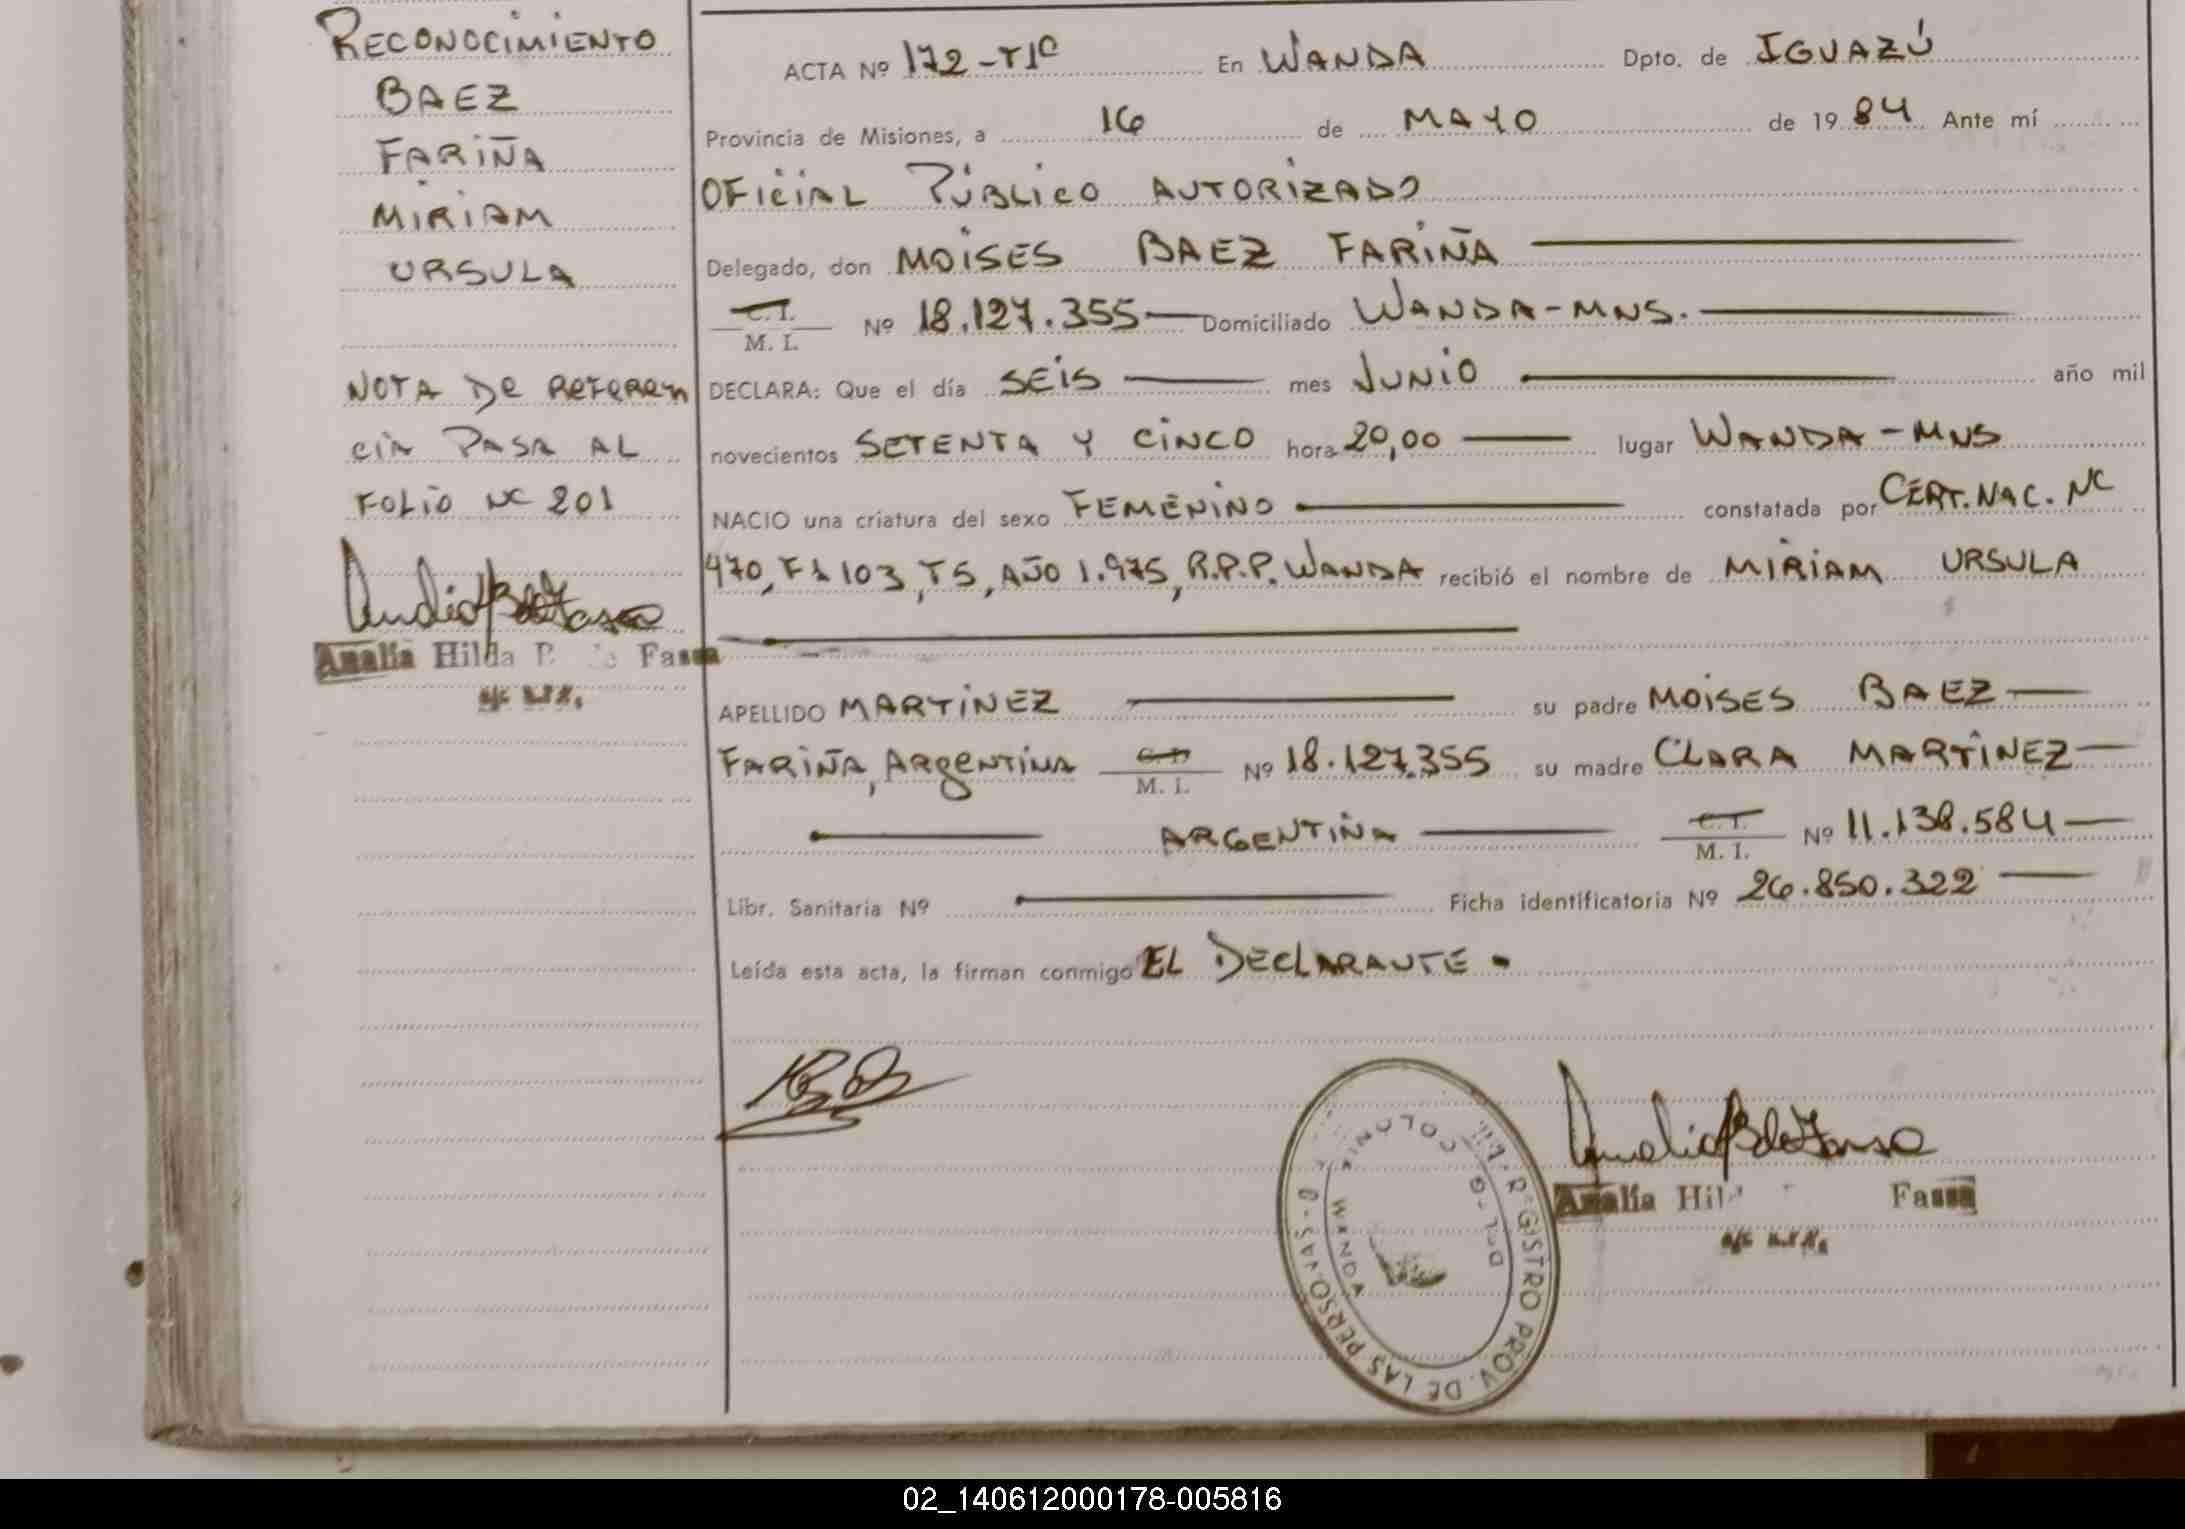 RECONOCIMIENTO
BAEZ
FARIÑA
MIRIAM
URSULA
NOTA DE REFEREN
CIA PASA AL
FOLIO Nº 201
Analía Hilda Fassa
ACTA Nº 172-T1º En WANDA Dpto. de IGUAZÚ
Provincia de Misiones, a 16 de MAYO de 1984 Ante mí
OFICIAL PÚBLICO AUTORIZADO
Delegado, don MOISES BAEZ FARIÑA
C. I.
M. I. Nº 18.127.355 Domiciliado WANDA-MNS.
DECLARA: Que el día SEIS mes JUNIO año mil
novecientos SETENTA Y CINCO hora 20,00 lugar WANDA-MNS
NACIO una criatura del sexo FEMENINO constatada por CERT.NAC. Nº
470, Fº 103, T5, AÑO 1.975, R.P.P. WANDA recibió el nombre de MIRIAM URSULA
APELLIDO MARTINEZ su padre MOISES BAEZ
FARIÑA, ARGENTINA C. I. M. I. Nº 18.127.355 su madre CLARA MARTINEZ
ARGENTINA C. I. M. I. Nº 11.138.584
Libr. Sanitaria Nº Ficha identificatoria Nº 26.850.322
Leída esta acta, la firman conmigo EL DECLARANTE.
REGISTRO PROV. DE LAS PERSONAS
COLONIA WANDA
Analía Hil Fassa
02_140612000178-005816